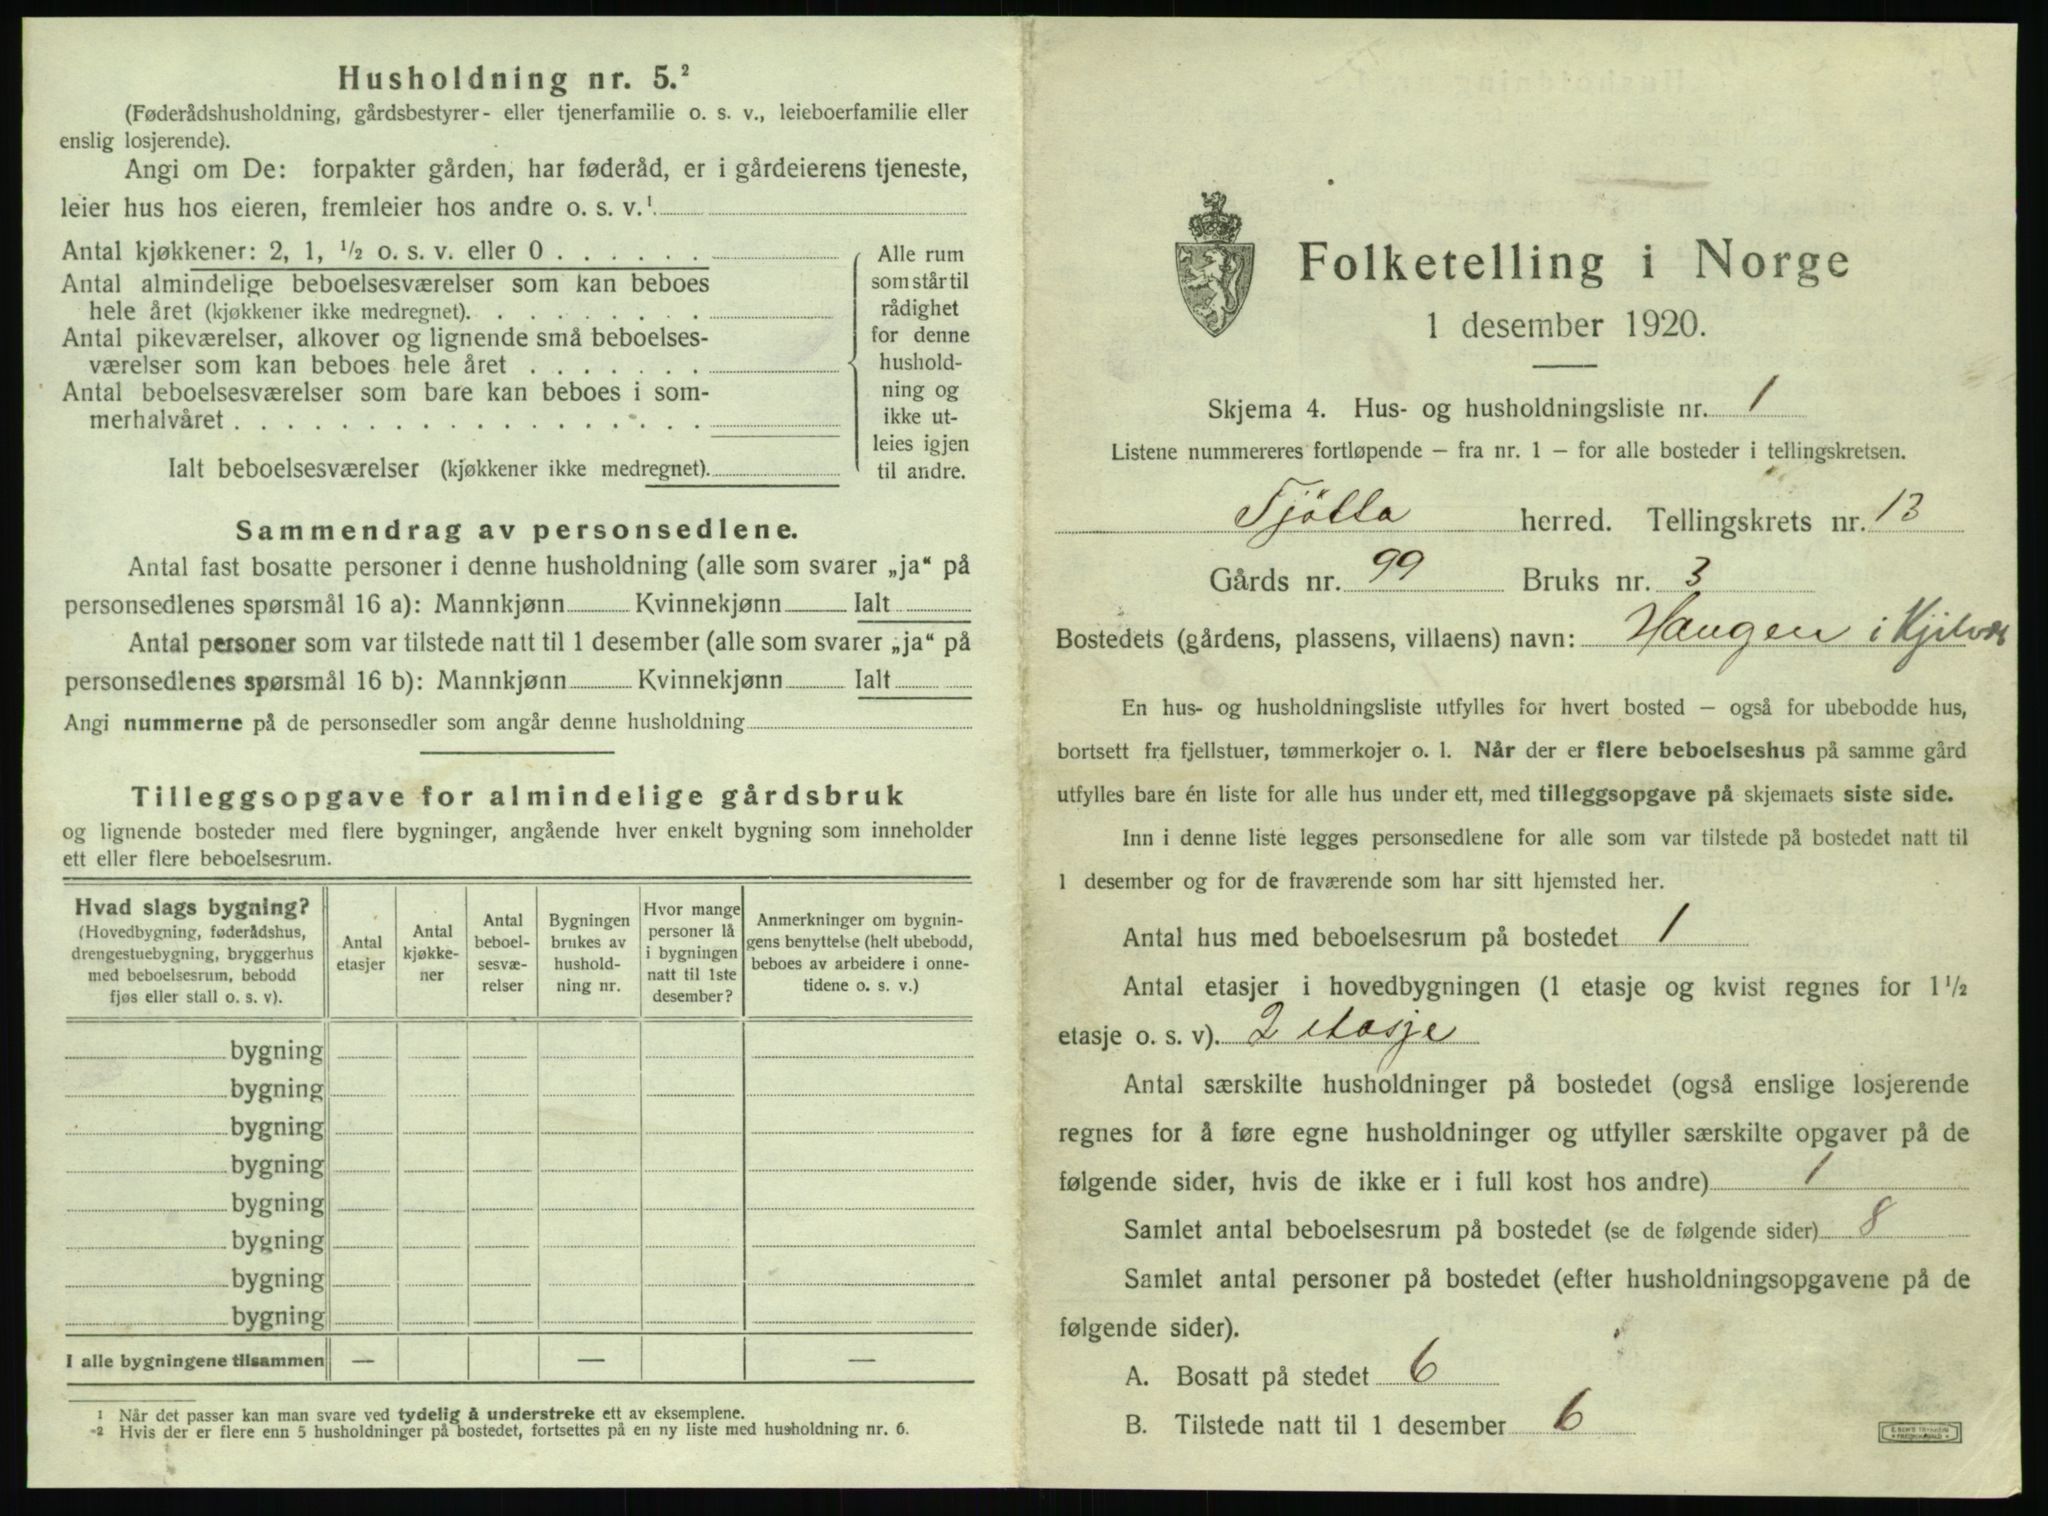 Husholdning nr. 5.²
(Føderådshusholdning, gårdsbestyrer- eller tjenerfamilie o. s. v., leieboerfamilie eller
enslig losjerende).
Angi om De: forpakter gården, har føderåd, er i gårdeierens tjeneste,
leier hus hos eieren, fremleier hos andre o. s. v.¹
Antal kjøkkener: 2, 1, ½ o. s. v. eller 0 . . . . . .
Antal almindelige beboelsesværelser som kan beboes
hele året (kjøkkener ikke medregnet). . . . . . . . .
Antal pikeværelser, alkover og lignende små beboelses-
værelser som kan beboes hele året . . . . . . .
Antal beboelsesværelser som bare kan beboes i som-
merhalvåret . . . . . . . . . . . . . . . . . .
Ialt beboelsesværelser (kjøkkener ikke medregnet).
Alle rum
som står til
rådighet
for denne
hushold-
ning og
ikke ut-
leies igjen
til andre.
Sammendrag av personsedlene.
Antal fast bosatte personer i denne husholdning (alle som svarer „ja“ på
personsedlenes spørsmål 16 a): Mannkjønn Kvinnekjønn Ialt
Antal personer som var tilstede natt til 1 desember (alle som svarer „ja“ på
personsedlenes spørsmål 16 b): Mannkjønn Kvinnekjønn Ialt
Angi nummerne på de personsedler som angår denne husholdning
Tilleggsopgave for almindelige gårdsbruk
og lignende bosteder med flere bygninger, angående hver enkelt bygning som inneholder
ett eller flere beboelsesrum.
Hvad slags bygning?
(Hovedbygning, føderådshus,
drengestuebygning, bryggerhus
med beboelsesrum, bebodd
fjøs eller stall o. s. v).
Antal
etasjer
Antal
kjøkke-
ner
Antal
beboel-
sesvæ-
relser
Bygningen
brukes av
hushold-
ning nr.
Hvor mange
personer lå
i bygningen
natt til 1ste
desember?
Anmerkninger om bygnin-
gens benyttelse (helt ubebodd,
beboes av arbeidere i onne-
tidene o. s. v.)
bygning
bygning
bygning
bygning
bygning
bygning
bygning
bygning
I alle bygningene tilsammen — — —
¹ Når det passer kan man svare ved tydelig å understreke ett av eksemplene.
² Hvis der er flere enn 5 husholdninger på bostedet, fortsettes på en ny liste med husholdning nr. 6.
Folketelling i Norge
1 desember 1920.
Skjema 4. Hus- og husholdningsliste nr. 1
Listene nummereres fortløpende — fra nr. 1 — for alle bosteder i tellingskretsen.
Tjötta herred. Tellingskrets nr. 13
Gårds nr. 99 Bruks nr. 3
Bostedets (gårdens, plassens, villaens) navn: Haugen i Kjilvær
En hus- og husholdningsliste utfylles for hvert bosted — også for ubebodde hus,
bortsett fra fjellstuer, tømmerkojer o. l. Når der er flere beboelseshus på samme gård
utfylles bare én liste for alle hus under ett, med tilleggsopgave på skjemaets siste side.
Inn i denne liste legges personsedlene for alle som var tilstede på bostedet natt til
1 desember og for de fraværende som har sitt hjemsted her.
Antal hus med beboelsesrum på bostedet 1
Antal etasjer i hovedbygningen (1 etasje og kvist regnes for 1½
etasje o. s. v). 2 etasje
Antal særskilte husholdninger på bostedet (også enslige losjerende
regnes for å føre egne husholdninger og utfyller særskilte opgaver på de
følgende sider, hvis de ikke er i full kost hos andre) 1
Samlet antal beboelsesrum på bostedet (se de følgende sider) 8
Samlet antal personer på bostedet (efter husholdningsopgavene på de
følgende sider).
A. Bosatt på stedet 6
B. Tilstede natt til 1 desember 6